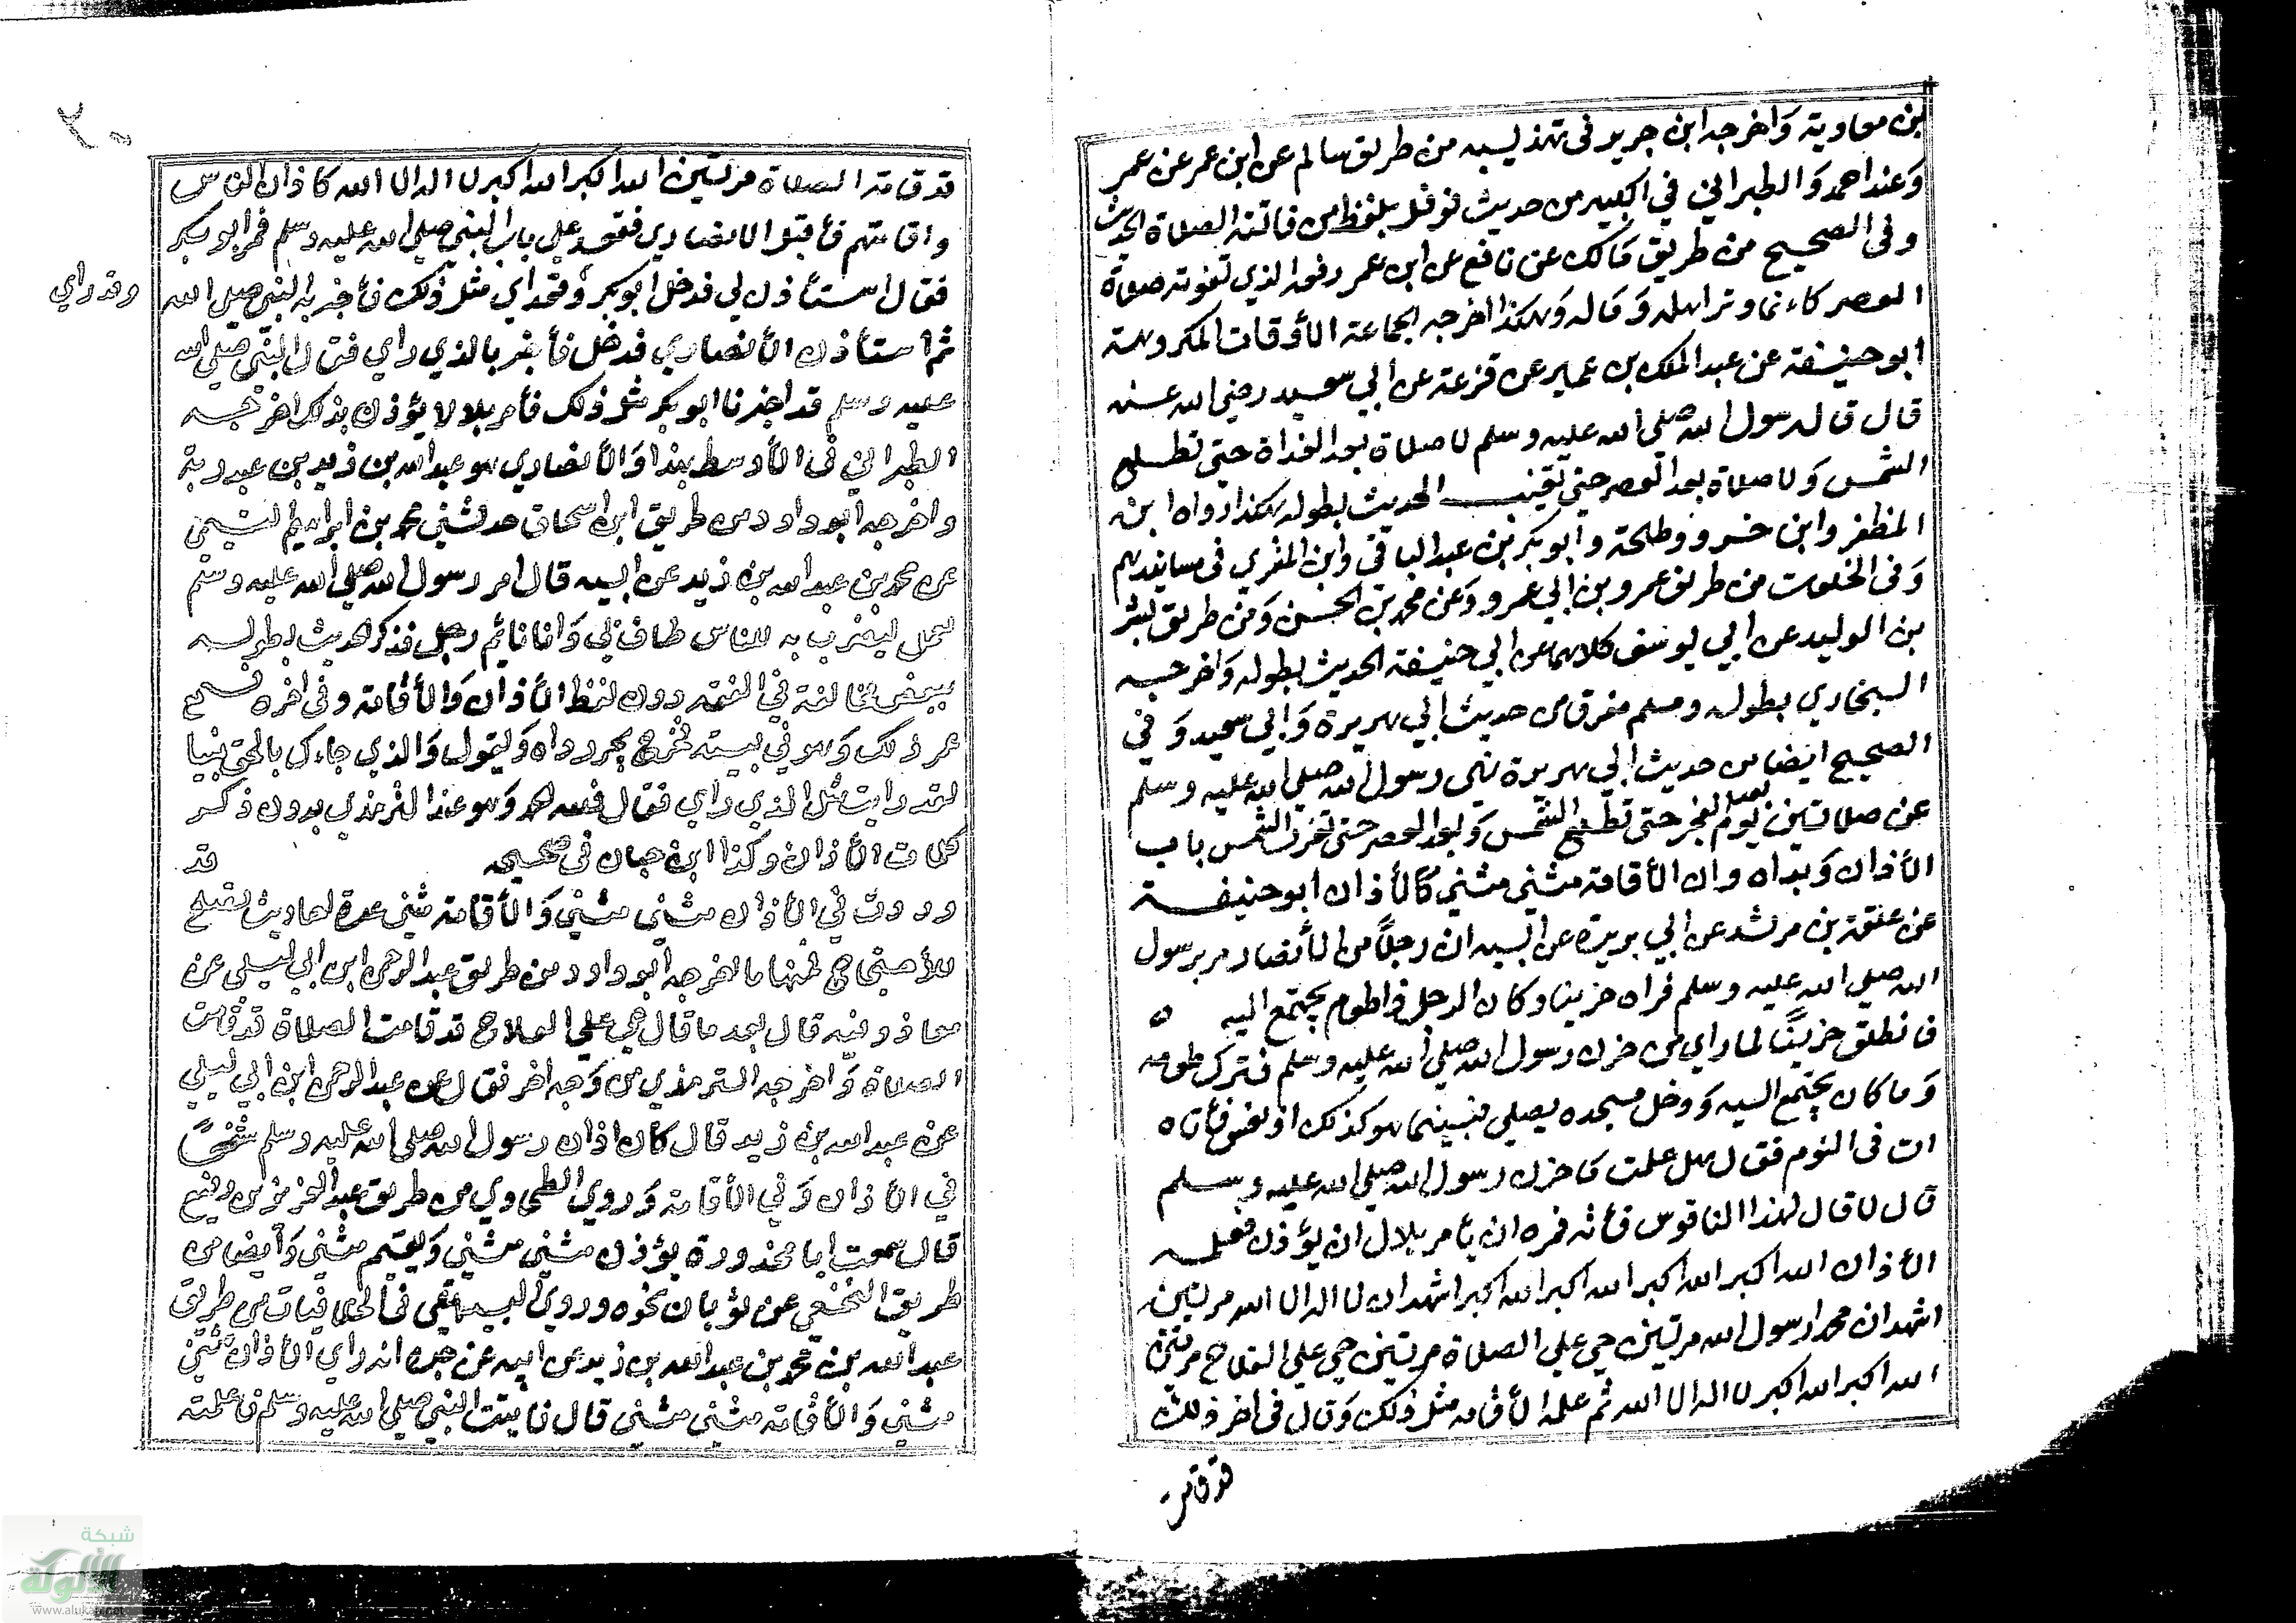 بن معاوية وَاخرجه ابن جرير فى تهذيبه من طريق سالم عن ابن عمر عن عمر
وَعند احمد وَالطبراني في الكبير من حديث نوفل بلفظ من فاتته الصلاة الحديث
وفى الصحيح من طريق مَالك عن نافع عن ابن عمر رفعه الذي تفوته صلاة
العصر كاءنما وتر اهله وَماله وَهكذا اخرجه الجماعة الأوقات المكروهة
ابو حنيفة عن عبد الملك بن عمير عن قزعة عن ابي سعيد رضي الله عنه
قال قال رسول الله صلي الله عليه وسلم لا صلاة بعد الغداة حتى تطلع
الشمس وَلا صلاة بعد العصر حتى تغيب الحديث بطوله هكذا رواه ابن
المظفر وابن خسرو وطلحة وَابو بكر بن عبد الباقي وابن المقري فى مسانيدهم
وَفى الخلعيات من طريق عمرو بن ابي عمرو وَعن محمد بن الحسن وَمن طريق بشر
بن الوليد عن ابي يوسف كلاهما عن ابي حنيفة الحديث بطوله وَاخرجه
البخاري بطوله ومسلم مفرق من حديث ابي هريرة وَابي سعيد وَفي
الصحيح ايضا من حديث ابي هريرة نهى رسول الله صلي الله عليه وسلم
عن صلاتين بعد الفجر حتى تطلع الشمس وَبعد العصر حتى تغرب الشمس باب
الأذان وَبداه وان الأقامة مثنى مثني كالأذان ابو حنيفة
عن علقمة بن مرثد عن ابي بريرة عن ابيه ان رجلاً من الأنصار مر برسول
الله صلي الله عليه وسلم فراه حزينا وكان الرجل ذا طعام يجتمع اليه
فانطلق حزينًا لما راي من حزن رسول الله صلي الله عليه وسلم فترك طعامه
وَما كان يجتمع اليه وَدخل مسجده يصلي فبينما هو كذلك اذ نعس فأتاه
ات فى النوم فقال هل علمت مَا حزن رسول الله صلي الله عليه وسلم
قال لا قال لهذا الناقوس فأته فمره ان يأمر بلال ان يؤذن فعلمه
الأذان الله اكبر الله اكبر الله اكبر الله اكبر اشهد ان لا اله الا الله مرتين
اشهد ان محمدا رسول الله مرتين حي علي الصلاة مرتين حي علي الفلاح مرتين
الله اكبر الله اكبر لا اله الا الله ثم علمه الأقامه مثل ذلك وَقال فى اخر ذلك
قد قامة
قد قامة الصلاة مرتين الله اكبر الله اكبر لا اله الا الله كاذان الناس
واقامتهم فأقبل الانصاري فقعد علي باب النبي صلي الله عليه وسلم فمر ابو بكر
فقال استأذن لي فدخل ابو بكر وقد راي مثل ذلك فأخبر به النبي صلي الله
وقد راي
ثم استأذن الأنصاري فدخل فأخبر بالذي راي فقال النبي صلي الله
عليه وسلم قد اخبرنا ابو بكر مثل ذلك فأمر بلالا يؤذن بذلك اخرجه
الطبراني فى الأوسط بهذا وَالأنصاري هو عبد الله بن زيد بن عبد ربة
واخرجه ابو داود من طريق ابن اسحاق حدثني محمد بن ابراهيم التيمي
عن محمد بن عبد الله بن زيد عن ابيه قال امر رسول الله صلي الله عليه وسلم
يعمل ليضرب به للناس طاف بي وَانا نائم رجل فذكر الحديث بطوله
ببعض مخالفة في القصه دون لفظ الأذان وَالأقامة وفى اخره فسمع
عمر ذلك وَهو في بيته فخرج يجر رداه وَيقول وَالذي جاءك بالحق نبيا
لقد رايت مثل الذي راي فقال فلله الحمد وَهو عند الترمذي بدون ذكر
كلمات الأذان وكذا ابن حبان فى صحيحه قد
وردت في الأذان مثنى مثني وَالأقامة مثني عدة احاديث تصلح
للأحتجاج فمنها ما اخرجه ابو داود من طريق عبد الرحمن ابن ابي ليلى عن
معاذ وفيه قال بعد ما قال حي علي الفلاح قد قامت الصلاة قد قامت
الصلاة وَاخرجه الترمذي من وَجه اخر فقال عن عبد الرحمن ابن ابي ليلي
عن عبد الله بن زيد قال كان اذان رسول الله صلي الله عليه وسلم شفعًا
في الأذان وَفي الأقامة وَروي الطحاوي من طريق عبد العزيز بن رفيع
قال سمعت ابا محذورة يؤذن مثنى مثني وَيقيم مثني وَأيضا من
طريق النخعي عن ثوبان نحوه وروي البيهقى في الخلافيات من طريق
عبد الله بن محمد بن عبد الله بن زيد عن ابيه عن جده انه راي الأذان مثني
مثني وَالأقامة مثنى مثنى قال فاتيت النبي صلي الله عليه وسلم فاعلمته
شبكة
الألوكة
www.alukah.net